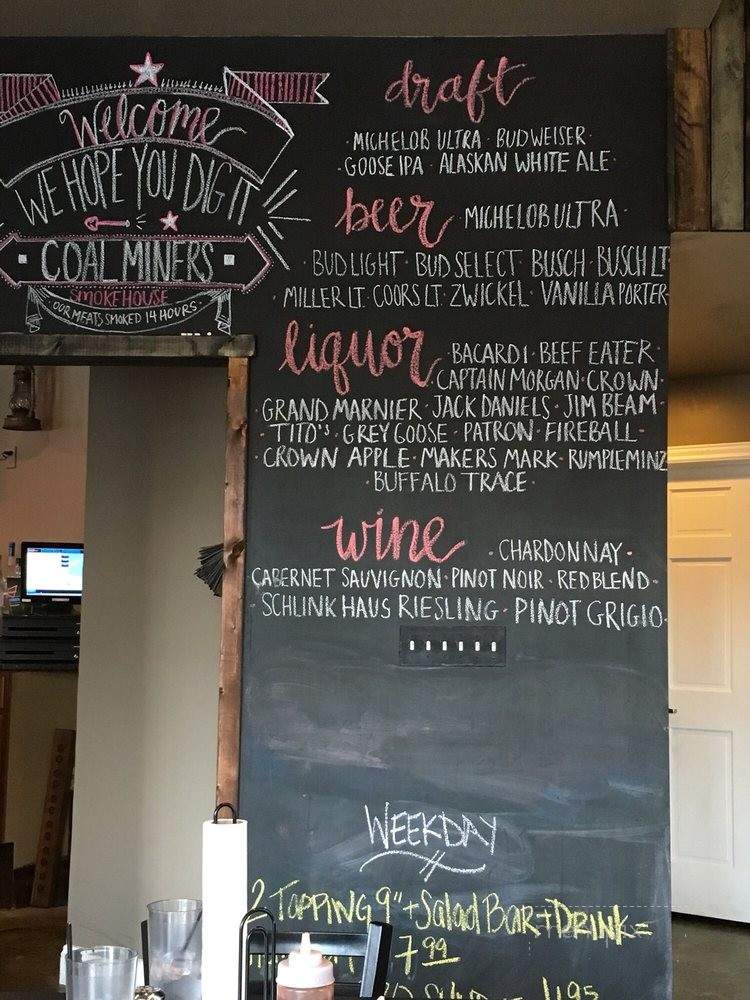 Welcome
WE HOPE YOU DIG IT
COAL MINERS
SMOKEHOUSE
OUR MEATS SMOKED 14 HOURS
draft
· MICHELOB ULTRA · BUDWEISER ·
· GOOSE IPA · ALASKAN WHITE ALE ·
beer · MICHELOB ULTRA ·
· BUD LIGHT · BUD SELECT · BUSCH · BUSCH LT
MILLER LT · COORS LT · ZWICKEL · VANILLA PORTER ·
liquor · BACARDI · BEEF EATER ·
· CAPTAIN MORGAN · CROWN ·
GRAND MARNIER · JACK DANIELS · JIM BEAM ·
· TITO'S · GREY GOOSE · PATRON · FIREBALL ·
· CROWN APPLE · MAKERS MARK · RUMPLEMINZ
· BUFFALO TRACE ·
wine · CHARDONNAY ·
CABERNET SAUVIGNON · PINOT NOIR · RED BLEND ·
· SCHLINK HAUS RIESLING · PINOT GRIGIO ·
WEEKDAY
2 TOPPING 9" + Salad BAR + DRINK =
7.99
4.95